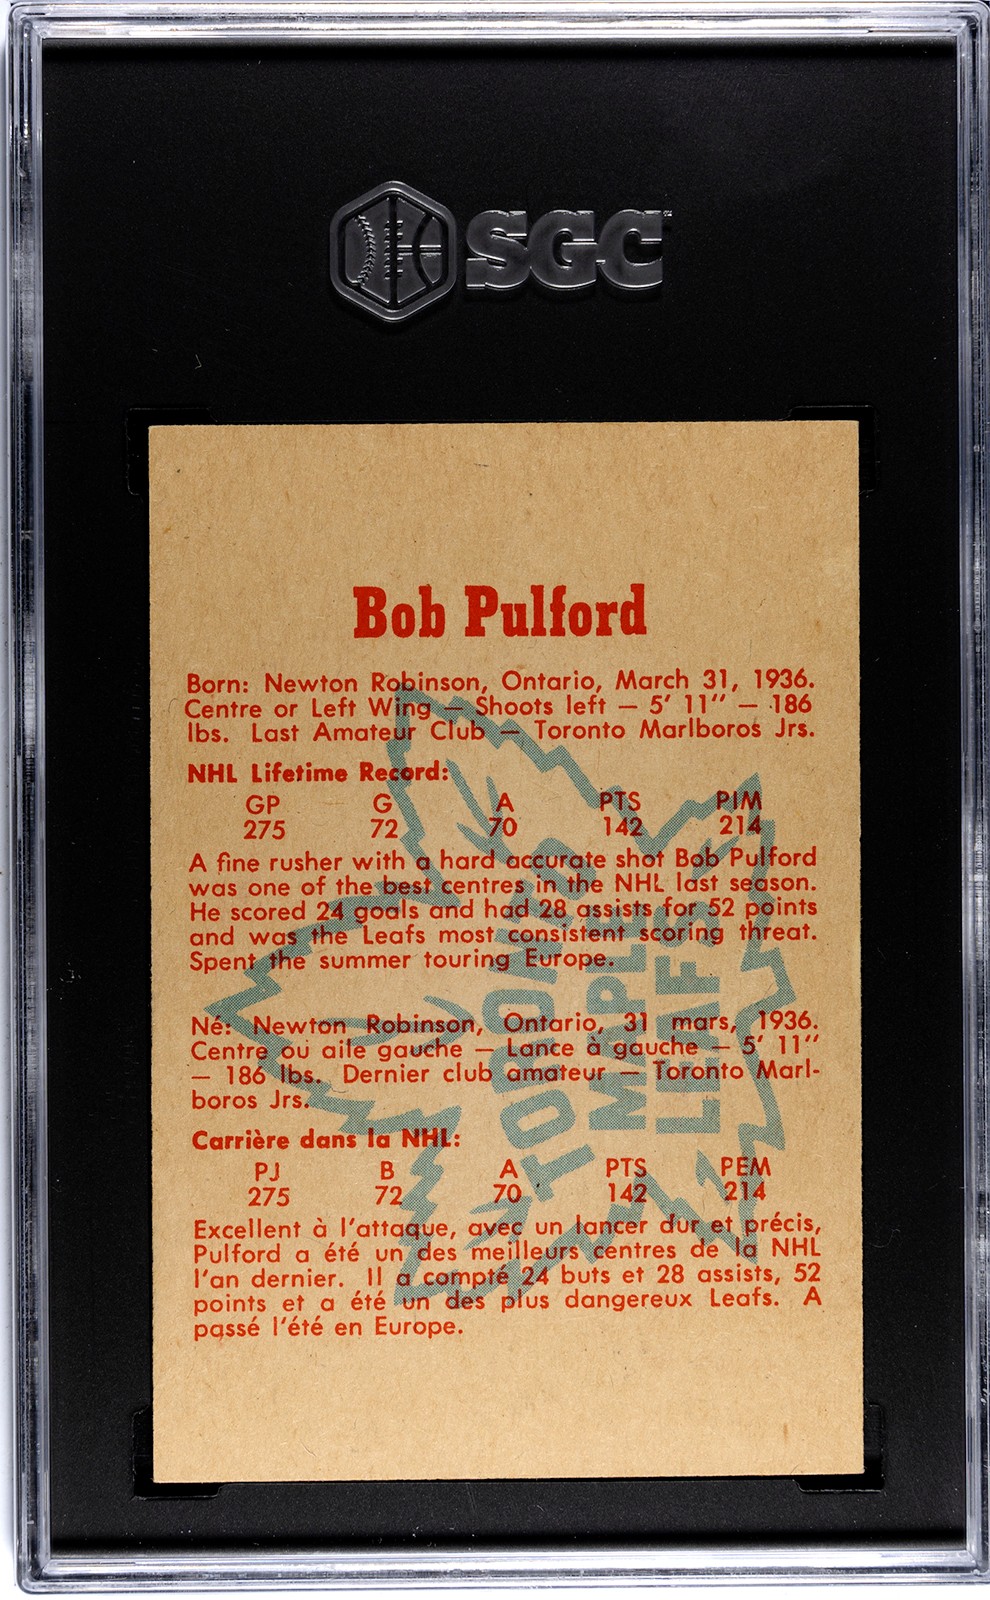 SGC
Bob Pulford
Born: Newton Robinson, Ontario, March 31, 1936.
Centre or Left Wing — Shoots left — 5' 11" — 186
lbs. Last Amateur Club — Toronto Marlboros Jrs.
NHL Lifetime Record:
GP G A PTS PIM
275 72 70 142 214
A fine rusher with a hard accurate shot Bob Pulford
was one of the best centres in the NHL last season.
He scored 24 goals and had 28 assists for 52 points
and was the Leafs most consistent scoring threat.
Spent the summer touring Europe.
Né: Newton Robinson, Ontario, 31 mars, 1936.
Centre ou aile gauche — Lance à gauche — 5' 11"
— 186 lbs. Dernier club amateur — Toronto Marl-
boros Jrs.
Carrière dans la NHL:
PJ B A PTS PEM
275 72 70 142 214
Excellent à l'attaque, avec un lancer dur et précis,
Pulford a été un des meilleurs centres de la NHL
l'an dernier. Il a compté 24 buts et 28 assists, 52
points et a été un des plus dangereux Leafs. A
passé l'été en Europe.
TORONTO
MAPLE
LEAFS